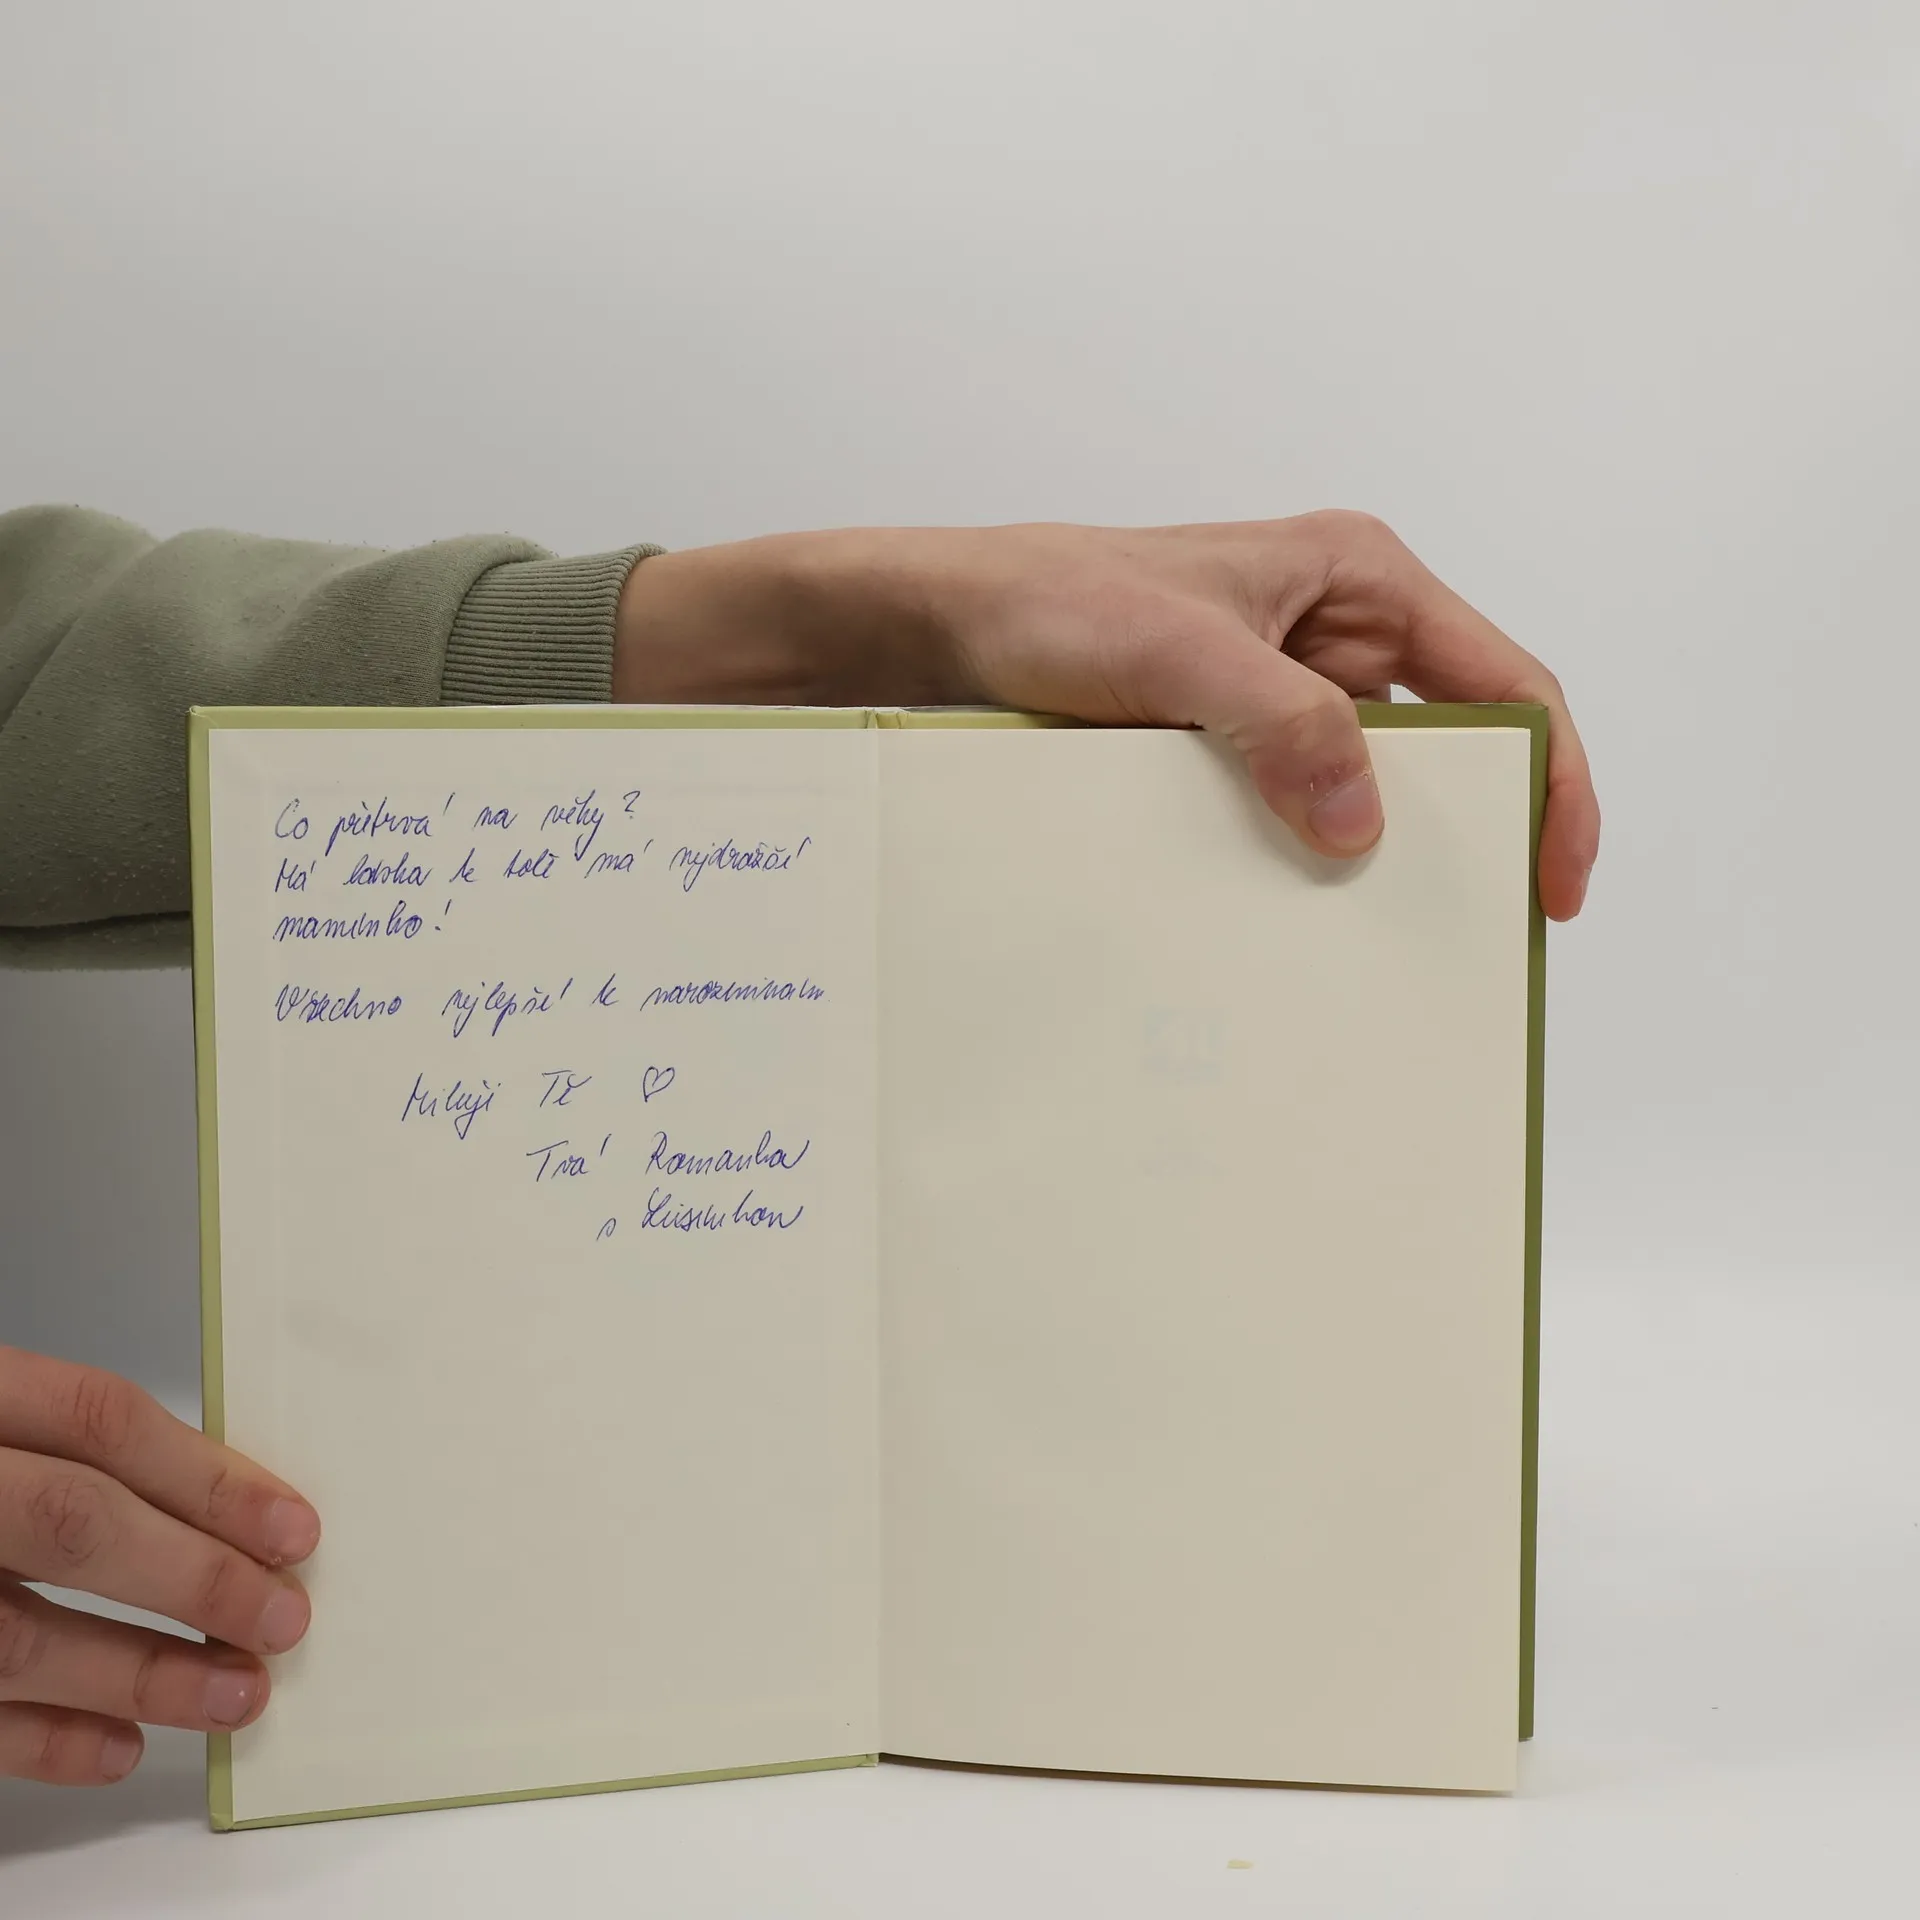 Co přetrvá na věky?
Má láska k tobě má nejdražší
maminko!
Všechno nejlepší k narozeninám
Miluji Tě ♡
Tvá Romanka
s